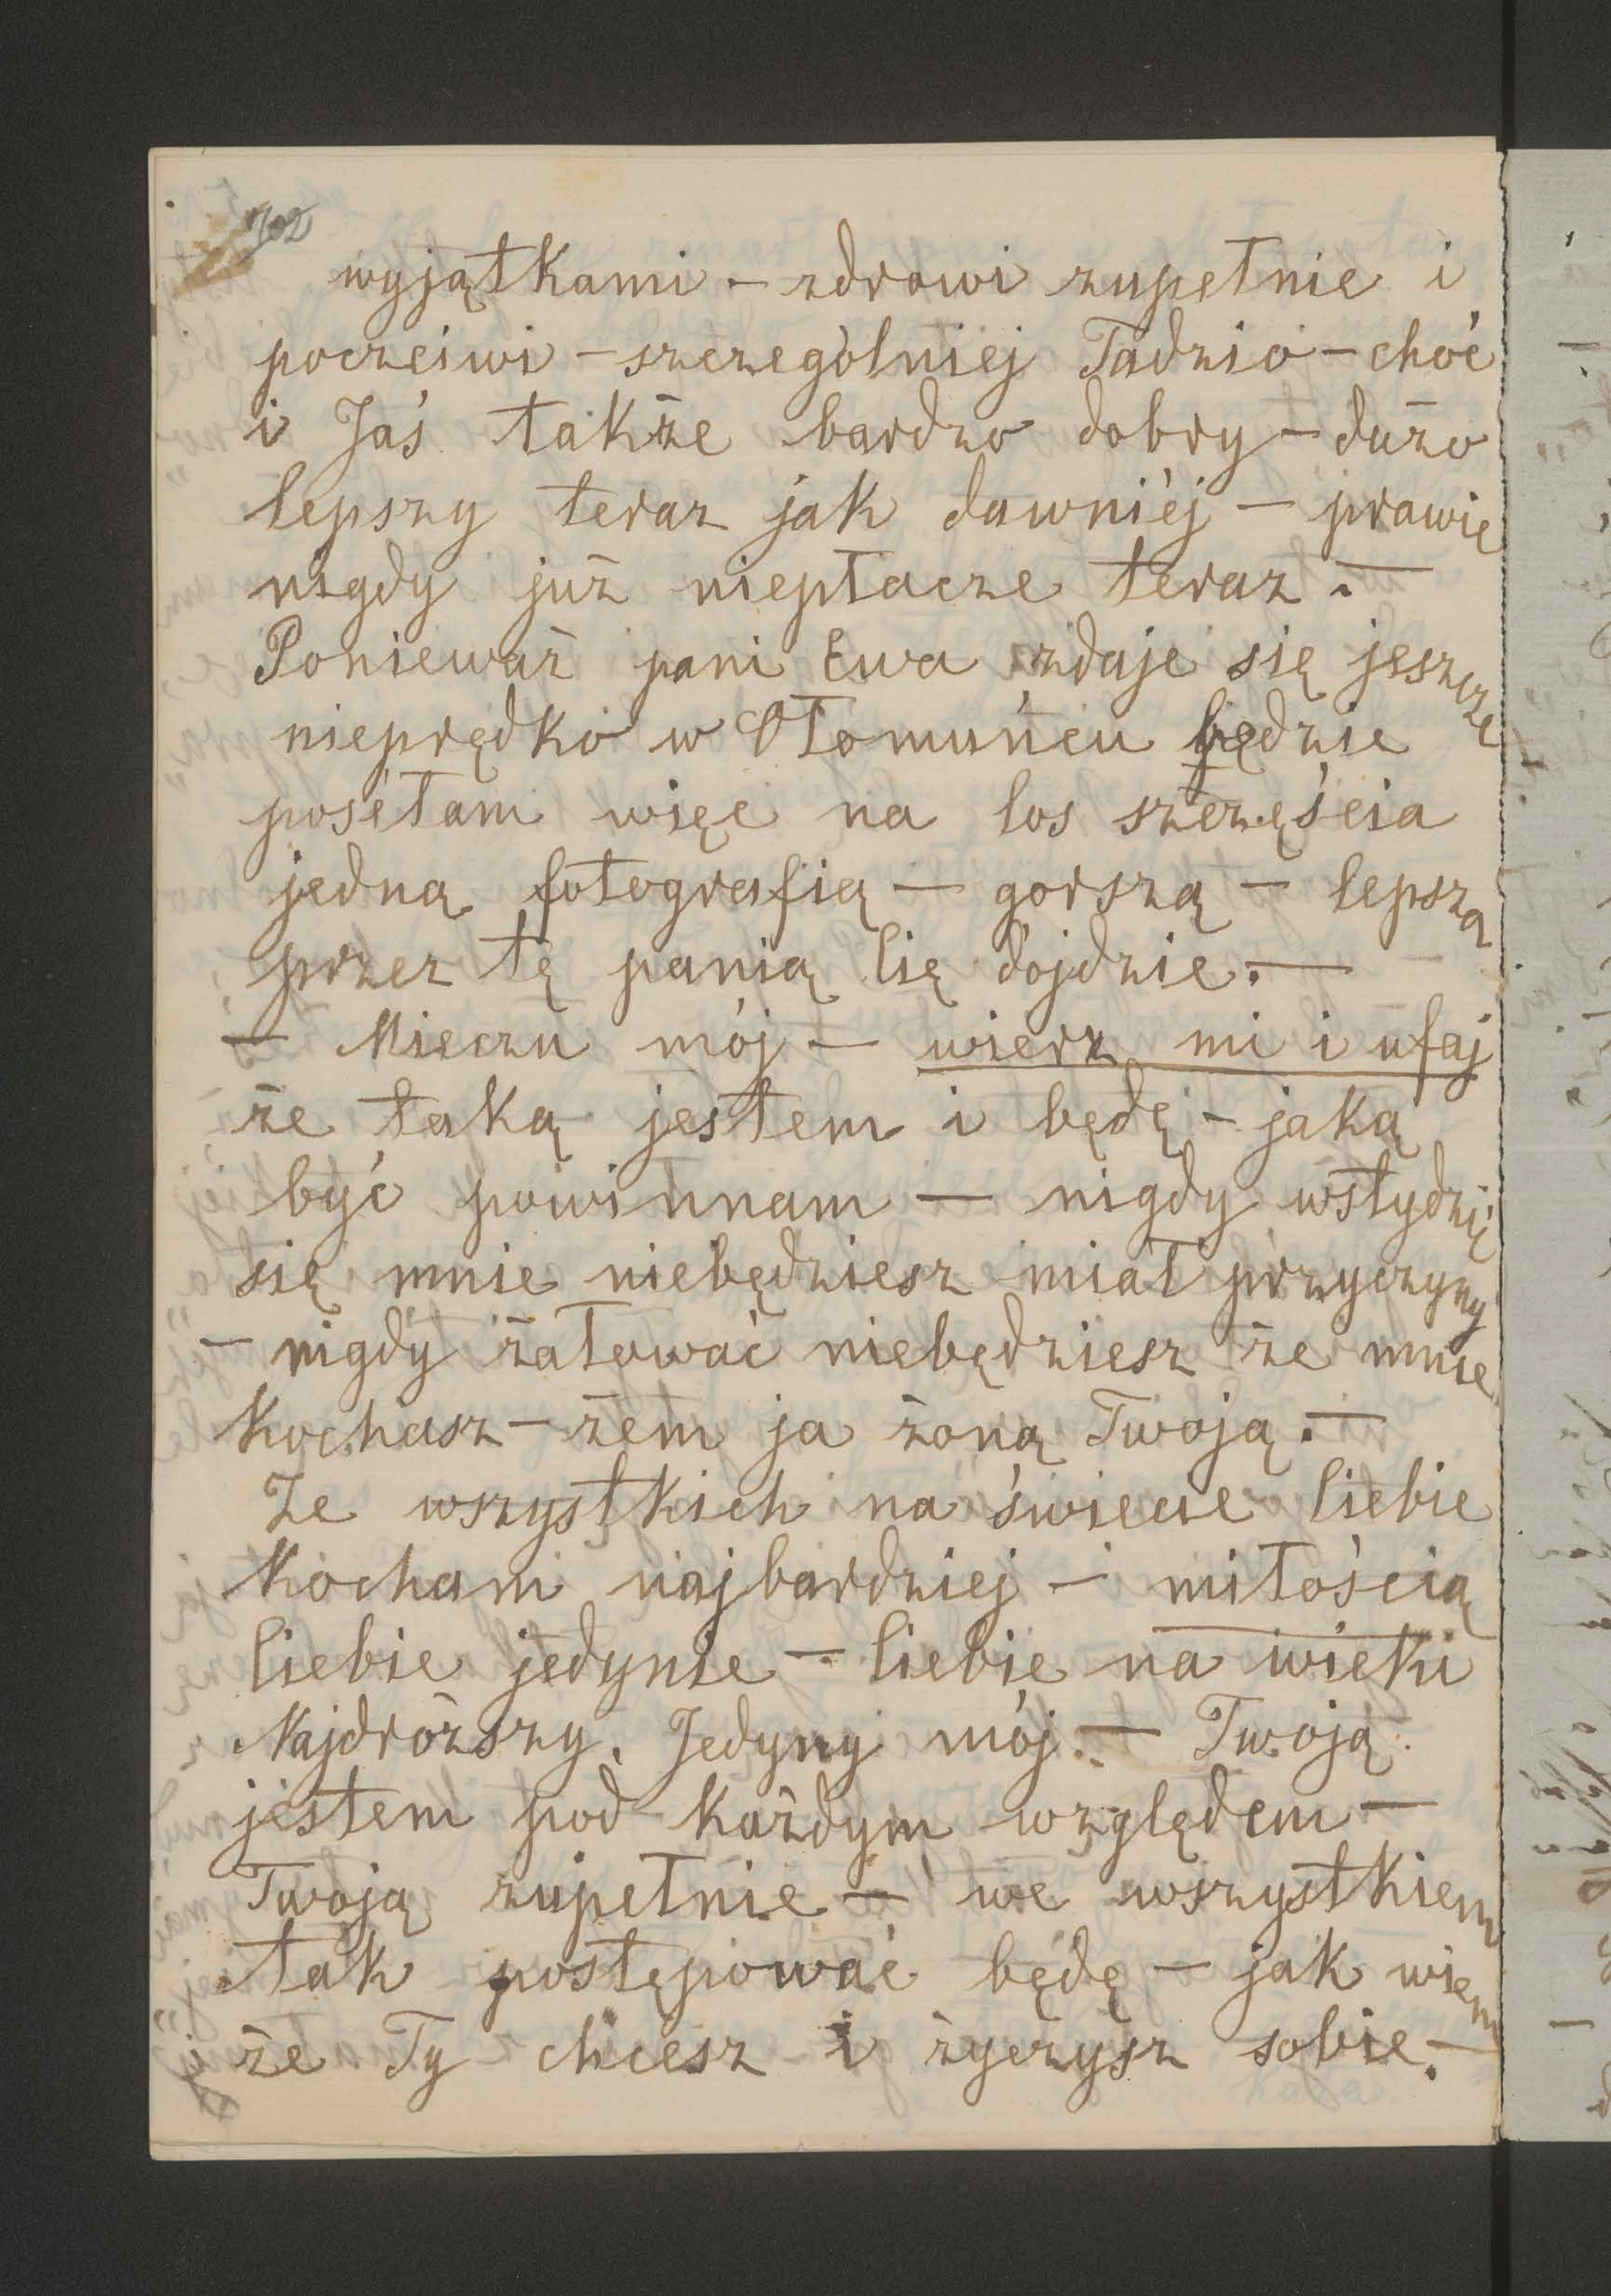 702
wyjątkami – zdrowi zupełnie i
poczciwi – szczególniej Tadzio – choć
i Jaś także bardzo dobry – dużo
lepszy teraz jak dawniéj – prawie
nigdy już niepłacze teraz. –
Ponieważ pani Ewa zdaje się jeszcze
nieprędko w Ołomuńcu będzie
posełam więc na los szczęścia
jedną fotografią – gorszą – lepszą
przez tę panią Cię dojdzie. –
– Mieczu mój – wierz mi i ufaj
że taką jestem i będę – jaką
być powinnam – nigdy wstydzić
się mnie niebędziesz miał przyczyny
– nigdy żałować niebędziesz że mnie
kochasz – żem ja żoną Twoją. –
Ze wszystkich na świecie Ciebie
kocham najbardziej – miłością
Ciebie jedynie – Ciebie na wieki
Najdroższy, Jedyny mój. – Twoją
jestem pod każdym względem –
Twoją zupełnie – we wszystkiem
tak postępować będę – jak wiem
że Ty chcesz i życzysz sobie. –